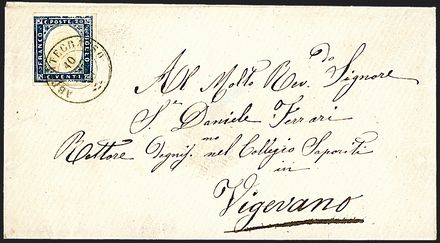 FRANCO
C. POSTE 20
BOLLO
C. VENTI
Al Molto Rev.do Signore
S.r Daniele Ferrari
Rettore Degniss.mo nel Collegio Saporiti
in
Vigevano